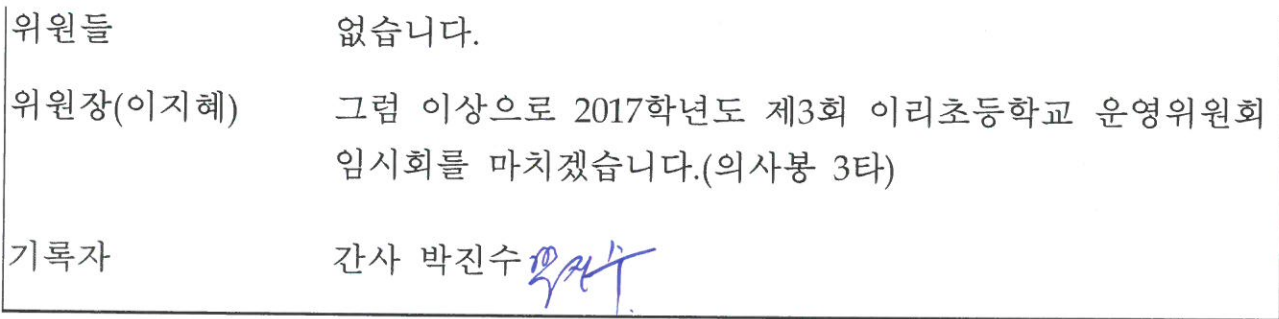 위원들 없습니다.
위원장(이지혜) 그럼 이상으로 2017학년도 제3회 이리초등학교 운영위원회
임시회를 마치겠습니다.(의사봉 3타)
기록자 간사 박진수